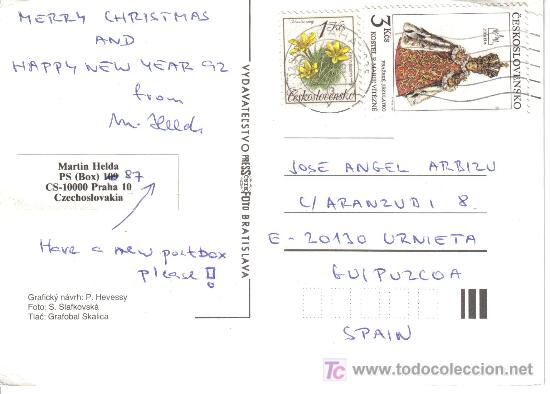 MERRY CHRISTMAS
AND
HAPPY NEW YEAR 92
from
M. Helda
Martin Helda
PS (Box) 109 87
CS-10000 Praha 10
Czechoslovakia
Have a new postbox
please!
Grafický návrh: P. Hevessy
Foto: S. Slafkovská
Tlač: Grafobal Skalica
VYDAVATEĽSTVO PRESSFOTO BRATISLAVA
1 Kčs
Československo
3 Kčs
PRAŽSKÉ JEZULÁTKO
KOSTEL P. MARIE VÍTĚZNÉ
ČESKOSLOVENSKO
JOSE ANGEL ARBIZU
C/ ARANZUBI 8.
E - 20130 URNIETA
GUIPUZCOA
SPAIN
TC www.todocoleccion.net